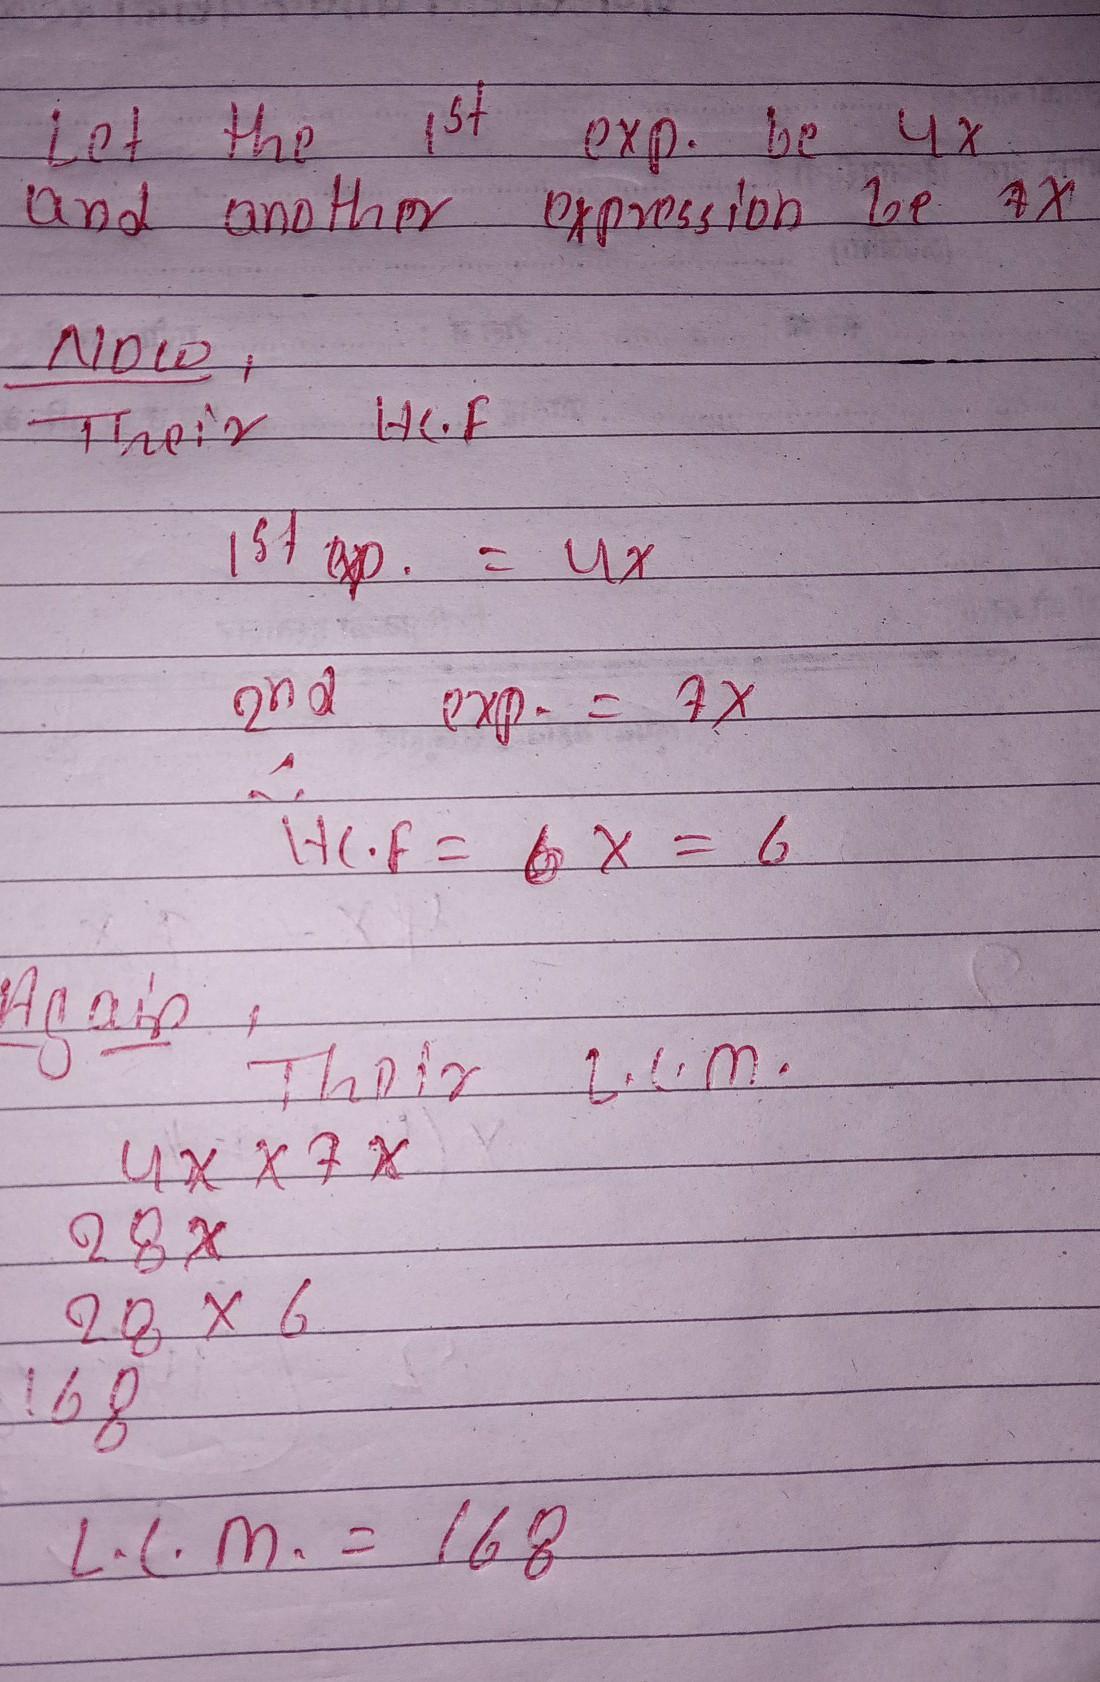 Let the 1st exp. be 4x
and another expression be 7x
Now,
Their H.C.F
1st exp. = 4x
2nd exp. = 7x
∴
H.C.F = x = 6
Again,
Their L.C.M.
4x × 7x
28x
28 × 6
168
L.C.M. = 168